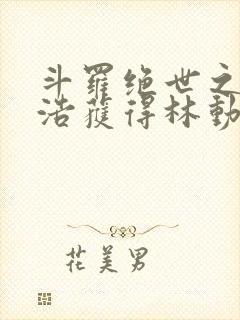 斗羅绝世之
浩獲得林動
花美男